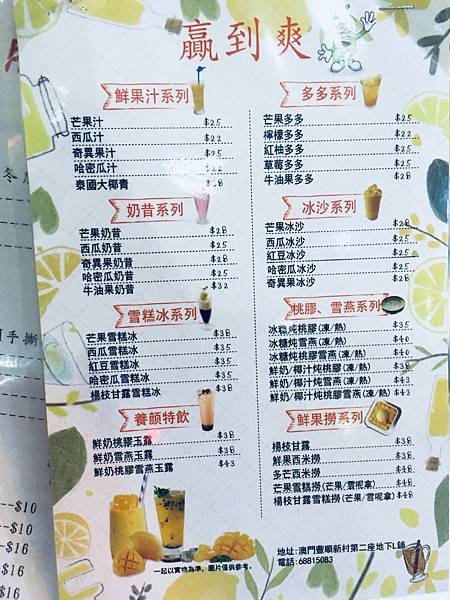 贏到爽
鮮果汁系列
芒果汁 $25
西瓜汁 $22
奇異果汁 $25
哈密瓜汁 $22
泰國大椰青
奶昔系列
芒果奶昔 $28
西瓜奶昔 $25
奇異果奶昔 $28
哈密瓜奶昔 $25
牛油果奶昔 $32
雪糕冰系列
芒果雪糕冰 $38
西瓜雪糕冰 $35
紅豆雪糕冰 $35
哈密瓜雪糕冰 $35
楊枝甘露雪糕冰 $38
養颜特飲
鮮奶桃膠玉露 $38
鮮奶雪燕玉露 $38
鮮奶桃膠雪燕玉露 $43
多多系列
芒果多多 $25
檸檬多多 $22
紅柚多多 $25
草莓多多 $25
牛油果多多 $28
冰沙系列
芒果冰沙 $28
西瓜冰沙 $25
紅豆冰沙 $25
哈密瓜冰沙 $25
奇異果冰沙 $28
桃膠、雪燕系列
冰糖炖桃膠(凍/熱) $35
冰糖炖雪燕(凍/熱) $40
冰糖炖桃膠雪燕(凍/熱) $40
鮮奶/椰汁炖桃膠(凍/熱) $38
鮮奶/椰汁炖雪燕(凍/熱) $43
鮮奶/椰汁炖桃膠雪燕(凍/熱) $43
鮮果撈系列
楊枝甘露 $38
鮮果西米撈 $38
多芒西米撈 $38
芒果雪糕撈(芒果/雲呢拿) $48
楊枝甘露雪糕撈(芒果/雲呢拿) $48
一起以實物為準，圖片僅供參考。
地址:澳門豐順新村第二座地下L鋪
電話:68815083
冬
手撕
--$10
--$10
-$16
-$16